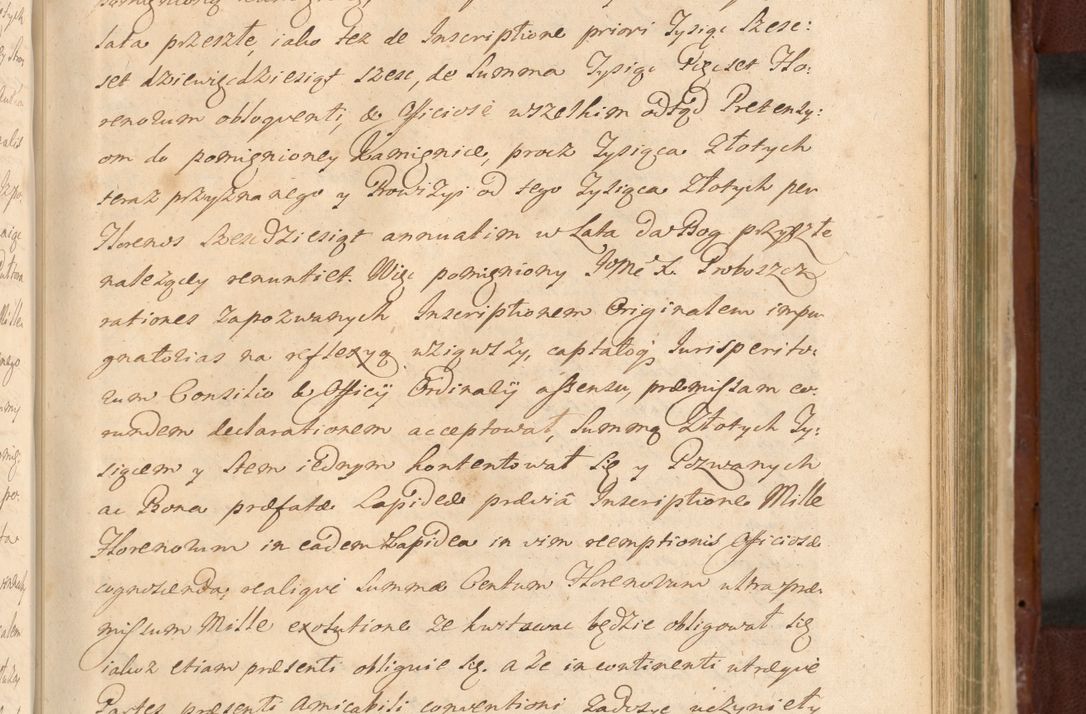 lata przeszłe, iako tez de Inscriptione priori Tysiąc Szesc:
set dziewięcdziesiąt szesc, de Summa Tysiąc Pięcset Flo:
renorum obloquenti, & Officiosè wszelkim odtąd Pretensy:
om do pomienioney Kamienice, procz Tysiąca Złotych
teraz przyznanego y Prowizyi od tego Tysiąca Złotych per
Florenos Szescdziesiąt annuatim w Lata da Bog przyszłe
należący renuntiet. Więc pomieniony Jmć X. Proboszcz
rationes Zapozwanych Inscriptionem Originalem impu-
gnatorias na reflexyą wziąwszy, captatoq Jurisperito-
rum Consilio & Officij Ordinarij assensu, præmissam eo-
rundem declarationem acceptował, Summą Złotych Ty:
siącem y stem iednym kontentował się y Pozwanych
ac Bona præfatæ Lapideæ præviâ Inscriptione Mille
Florenorum in eadem Lapidea in vim reemptionis Officiosè
cognoscenda, realiqué Summæ Centum Florenorum ultra præ-
missum Mille exolutione ze kwitować będzie obligował się
iakoż etiam præsenti obliguie się. a że in continenti utræqué
Partes præsenti Amicabili conventioni zadosyć uczyniły